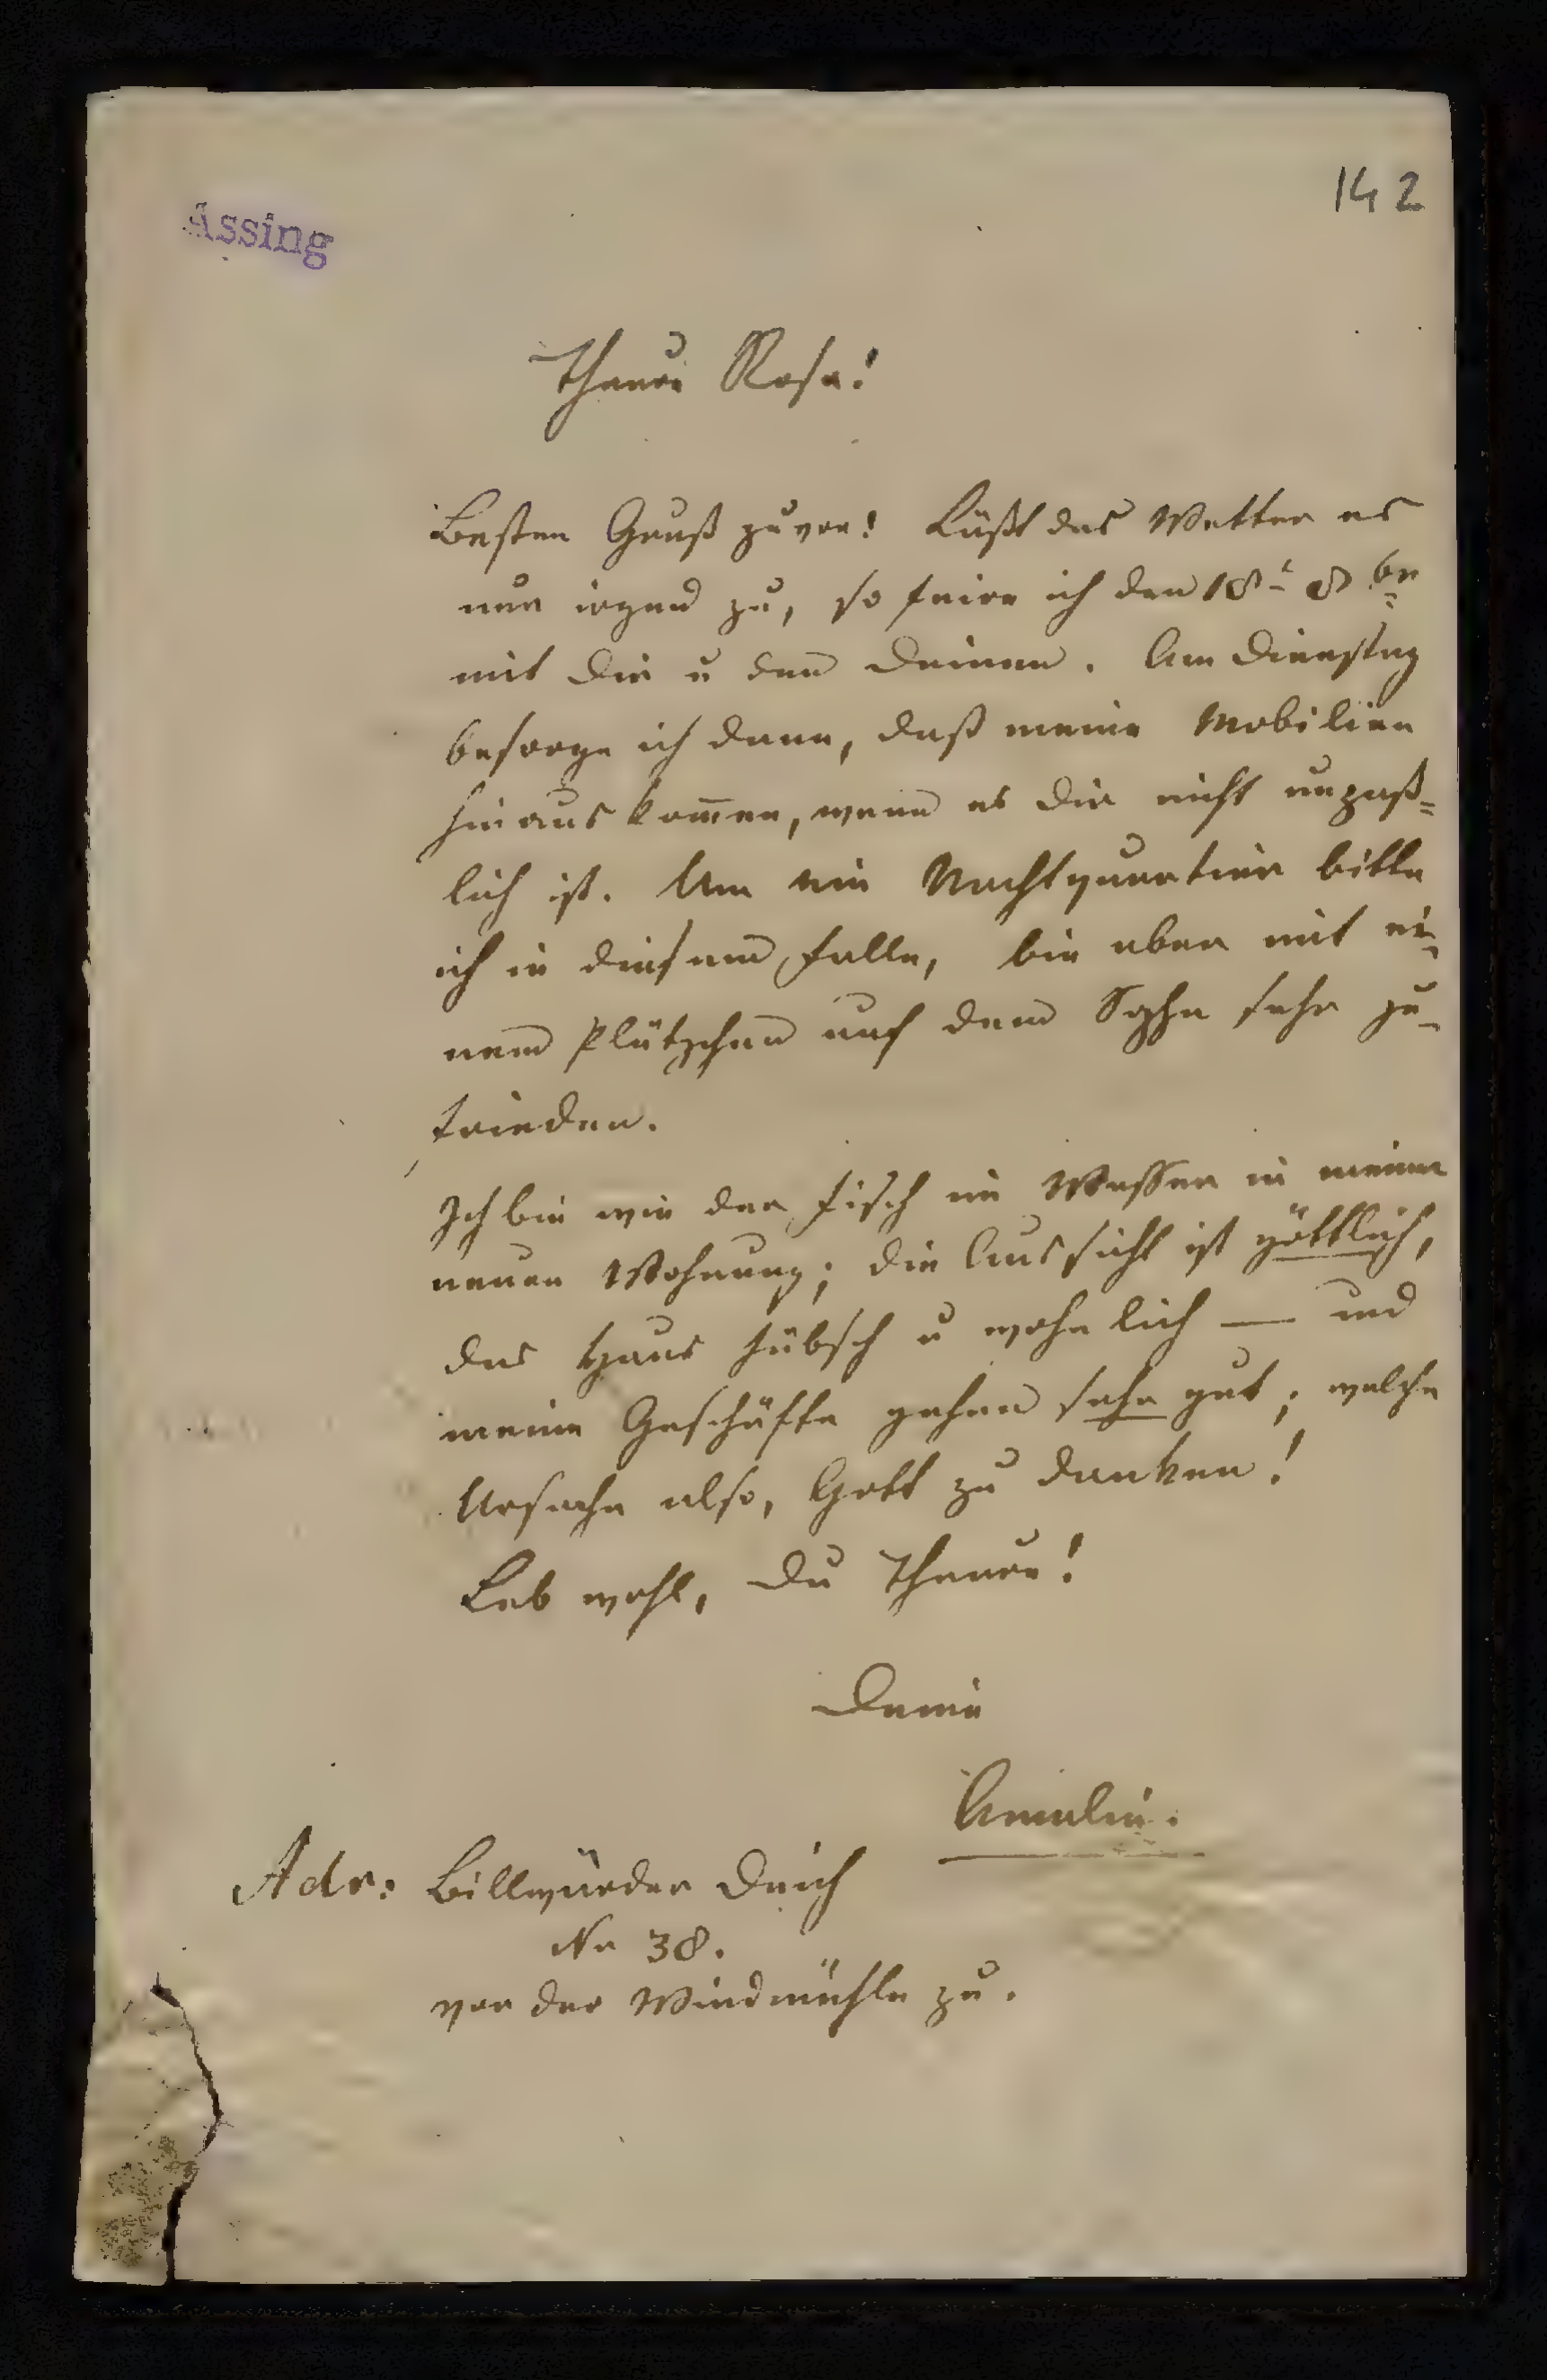 142
Assing
Theure Rosa!
Besten Gruß zuvor! Läßt das Wetter es
nur irgend zu, so feire ich den 18t 8br
mit Dir u den Deinen. Am Dienstag
besorge ich dann, daß meine Mobilien
hinaus kom̅en, wenn es Dir nicht unpaß=
lich ist. Um ein Nachtquartier bitte
ich in diesem Falle, bin aber mit ei-
nem Plätzchen auf dem Sopha sehr zu-
frieden.
Ich bin wie der Fisch im Wasser in meiner
neuen Wohnung; die Aussicht ist göttlich,
das Haus hübsch u wohnlich — und
meine Geschäfte gehen sehr gut; welche
Ursache also, Gott zu danken!
Leb wohl, Du Theure!
Deine
Amalie.
Adr: Billwärder Deich
No 38.
vor der Windmühle zu.